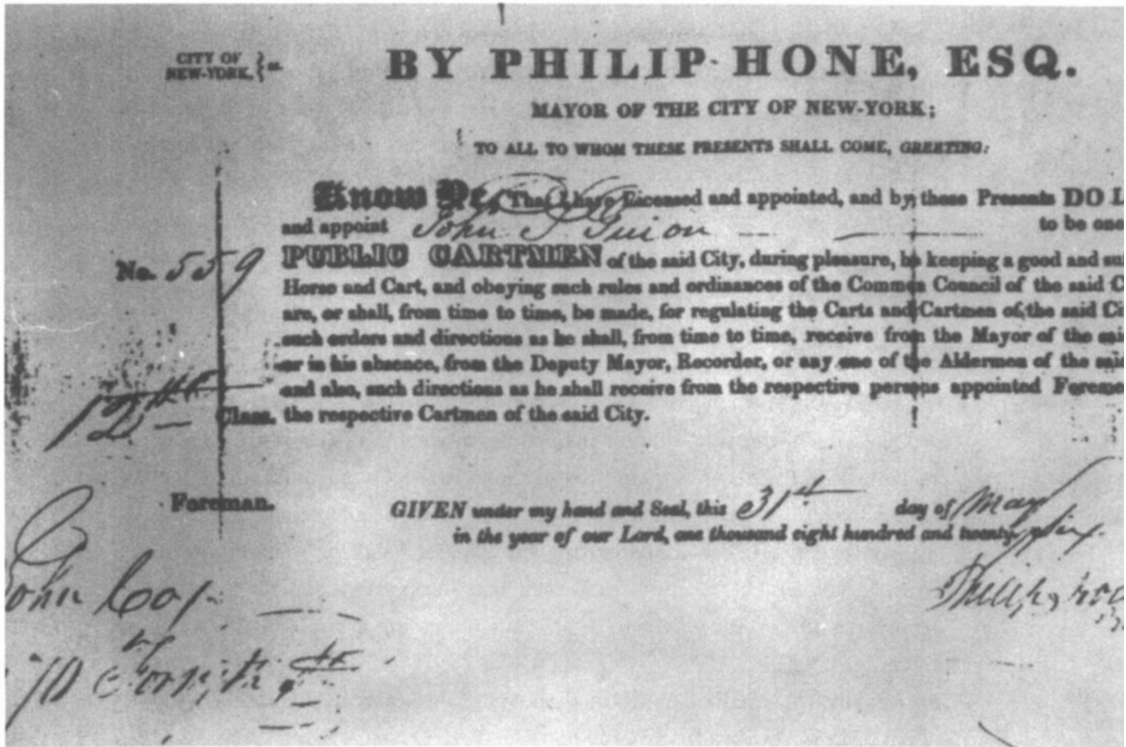 CITY OF
NEW-YORK, } ss.
BY PHILIP HONE, ESQ.
MAYOR OF THE CITY OF NEW-YORK;
TO ALL TO WHOM THESE PRESENTS SHALL COME, GREETING:
Know Ye, That I have Licensed and appointed, and by these Presents DO L
and appoint John S Guion to be one
No. 559
PUBLIC CARTMEN of the said City, during pleasure, he keeping a good and suf
Horse and Cart, and obeying such rules and ordinances of the Common Council of the said C
are, or shall, from time to time, be made, for regulating the Carts and Cartmen of the said Cit
such orders and directions as he shall, from time to time, receive from the Mayor of the said
or in his absence, from the Deputy Mayor, Recorder, or any one of the Aldermen of the said
and also, such directions as he shall receive from the respective persons appointed Foremen
12th Class. the respective Cartmen of the said City.
Foreman.
GIVEN under my hand and Seal, this 31st day of May
in the year of our Lord, one thousand eight hundred and twenty-six.
John Coy
Philip Hone